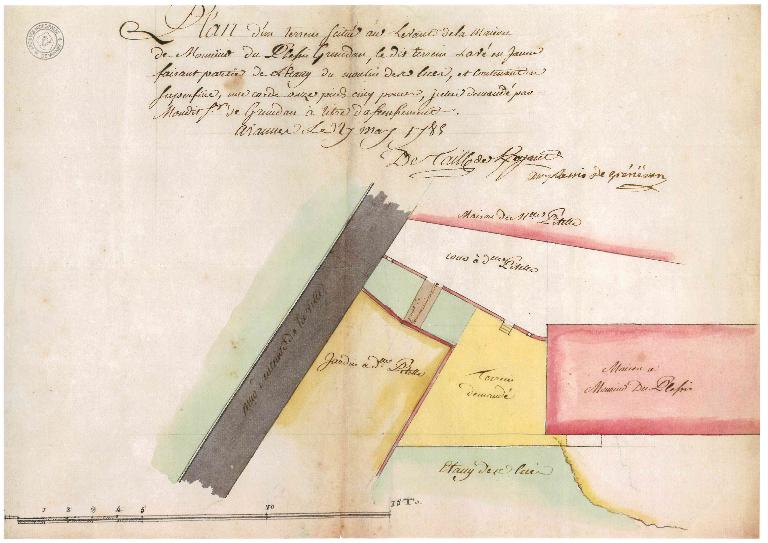 Plan d'un terrein situé au Levant de la Maison
de Monsieur du Plessis Grenédan, le dit terrein Lavé en Jaune
faisant partie de l'étang du moulin de lices, et contenant en
superficie, une corde onze pieds cinq pouces, jcelui demandé par
Mondit Sr. de Grenédan à titre d'afféagement.
à Vannes Le 27 may 1785
De Taille de
du plessis de grénédan
Maison des Mlles Pitelle
cour à Dlles Pitelle
Mur d'enceinte de la ville
Jardin à Dlles Pitelle
Terrein
demandé
Maison à
Monsieur Du Plessis
Etang de lices
1 2 3 4 5 10 15 To.